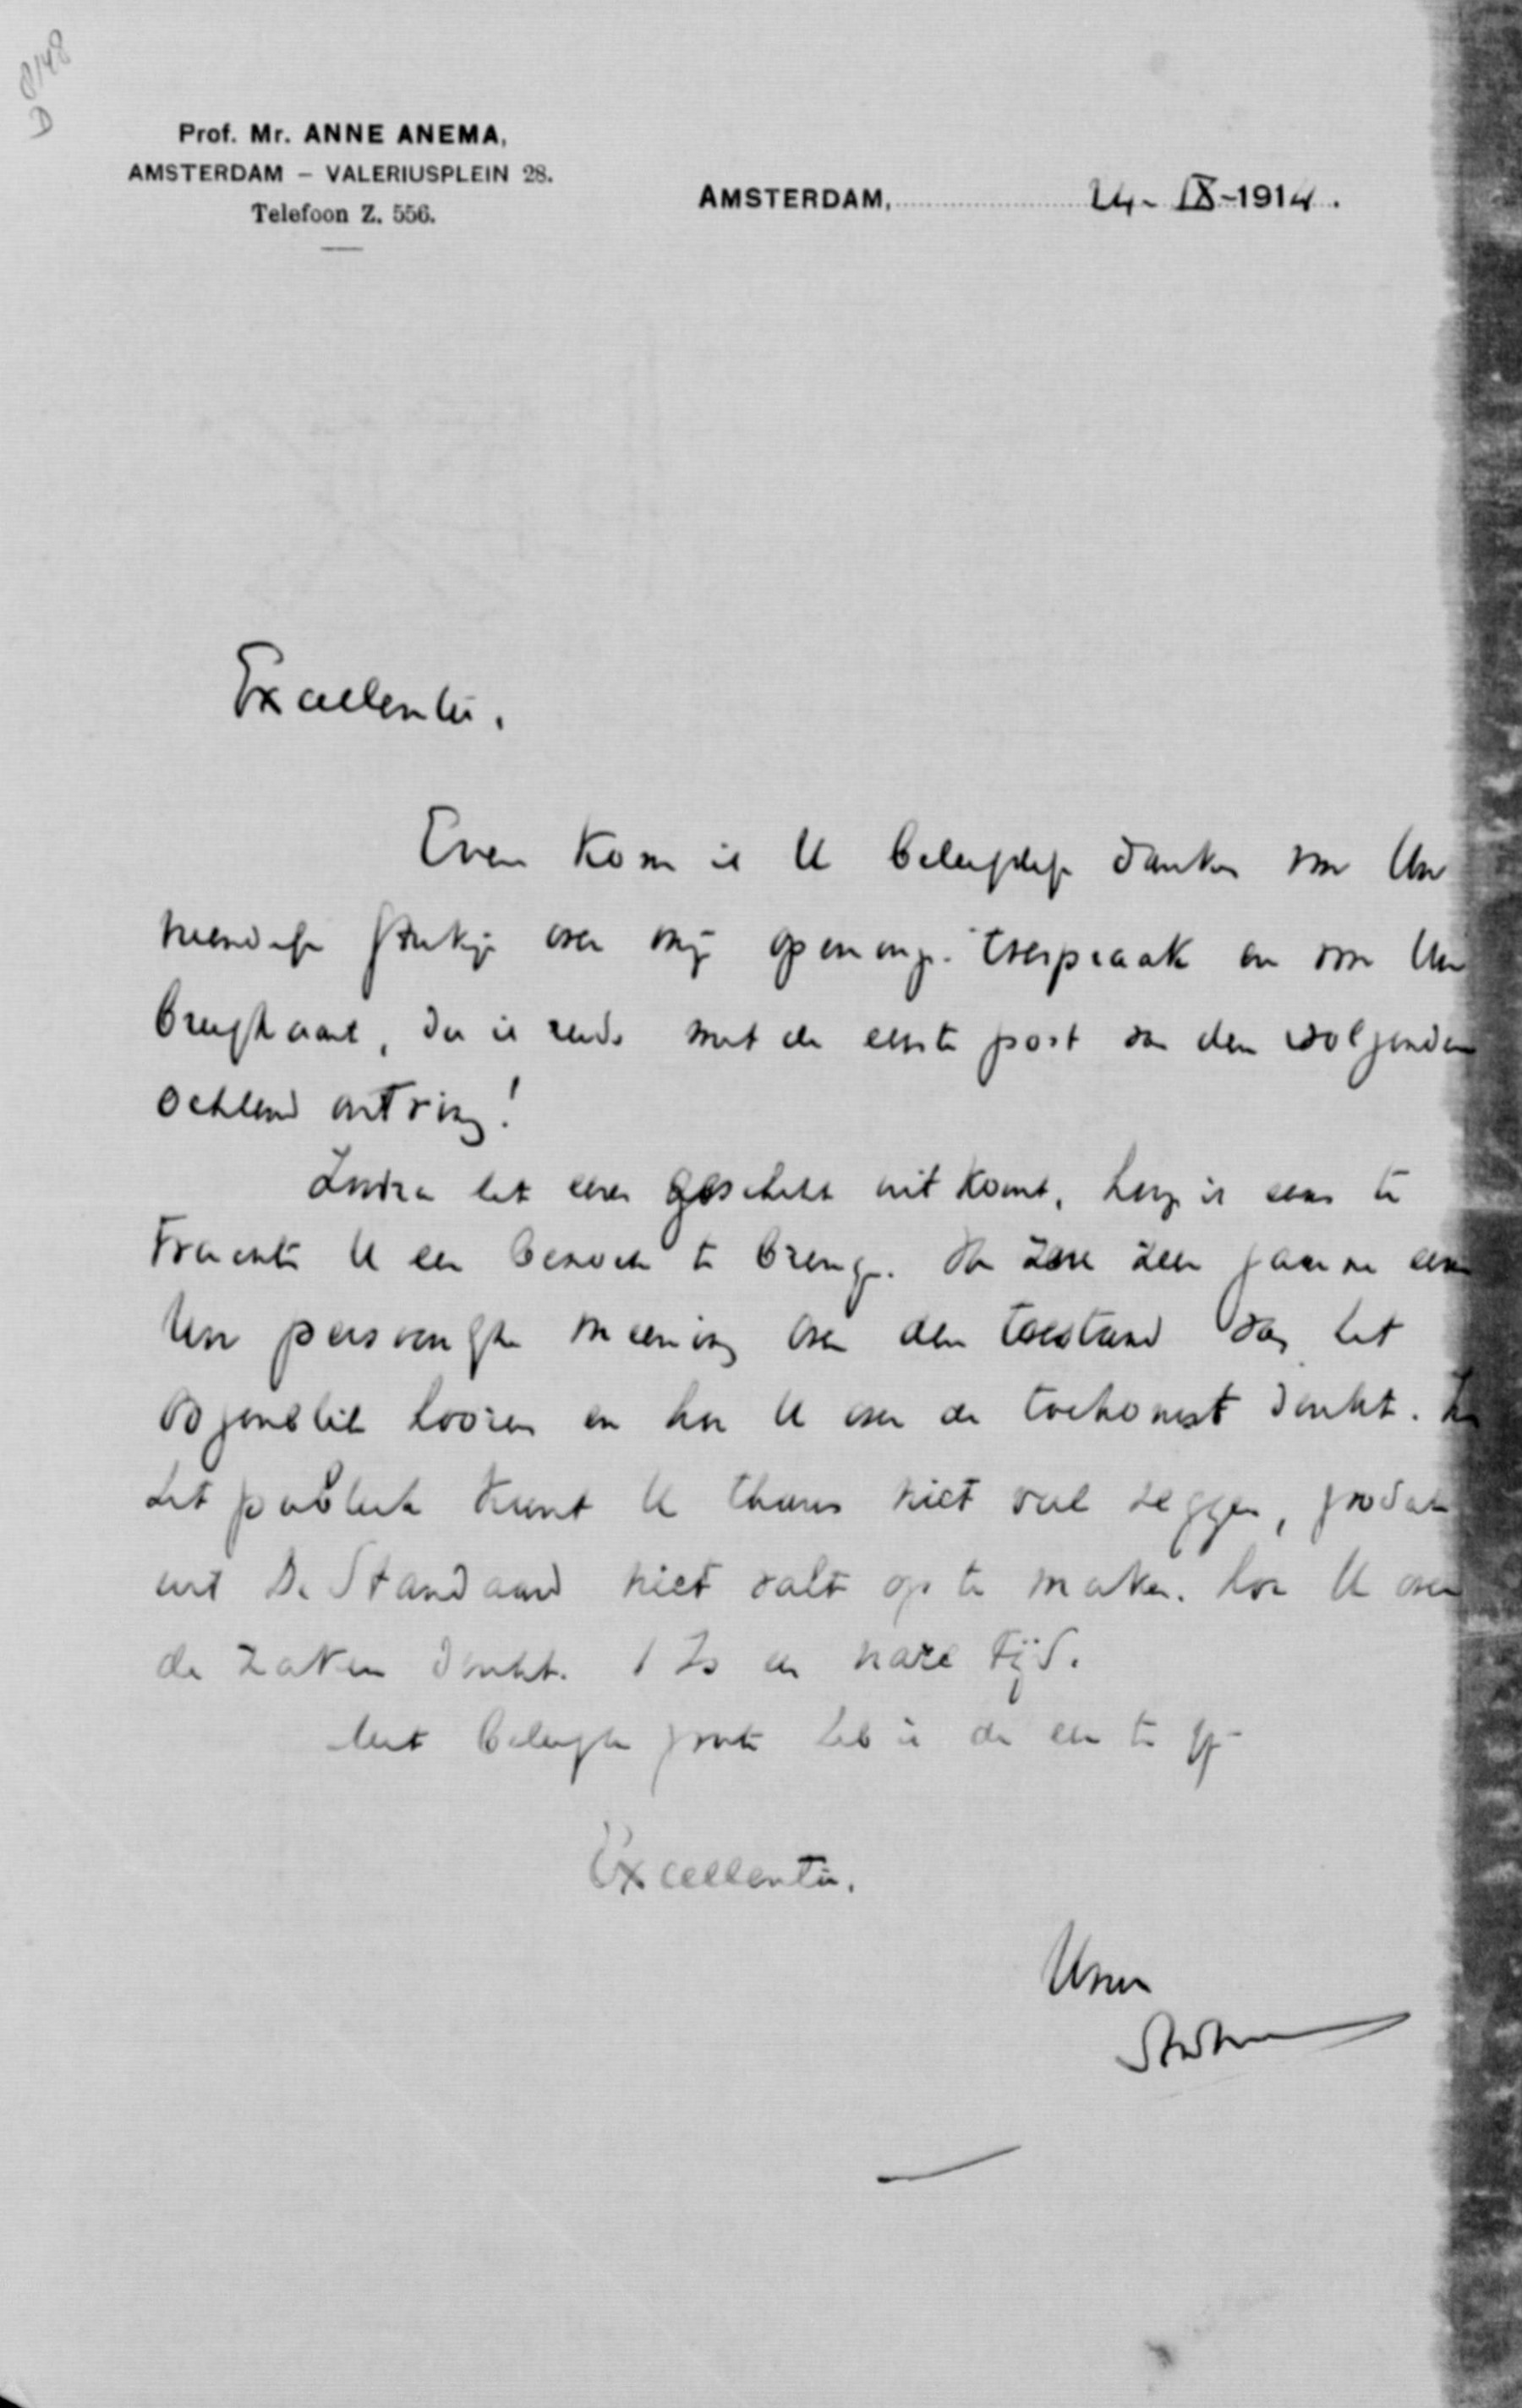 D 8148
Prof. Mr. ANNE ANEMA,
AMSTERDAM – VALERIUSPLEIN 28.
Telefoon Z. 556.
AMSTERDAM, 24-IX-1914.
Excellentie.
Even kom ik U beleefdelijk danken voor Uw
vriendelijk stukje over mijn openings-toespraak en voor Uw
briefkaart, die ik reeds met de eerste post van den volgenden
ochtend ontving!
Zoodra het even geschikt uitkomt, hoop ik eens te
trachten U een bezoek te brengen. Ik zou zeer gaarne eens
Uw persoonlijke meening over den toestand van het
oogenblik hooren en hoe U over de toekomst denkt. In
het publiek kunt U thans niet veel zeggen, zoodat
uit De Standaard niet valt op te maken, hoe U over
de zaken denkt. 't Is een nare tijd.
Met beleefde groete heb ik de eer te zijn
Excellentie.
Uwe